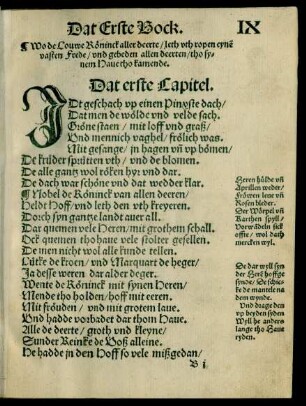 Dat Erste Bock. IX
¶ Wo de Louwe Köninck aller deerte / leth vth ropen eynẽ
vasten Frede / vnd gebeden allen deerten / tho sy-
nem Haue tho kamende.
Dat erste Capitel.
IDt geschach vp einen Pinxste dach /
Dat men de wölde vnd velde sach.
Gröne staen / mit loff vnd graß /
Vnd mennich vaghel / frölich was.
Mit gesange / jn hagen vñ vp bömen /
De krüder sprütten vth / vnd de blomen.
De alle gantz wol röken hyr vnd dar.
De dach war schöne vnd dat wedder klar.
¶ Nobel de Köninck van allen deeren /
Heldt Hoff / vnd leth den vth kreyeren.
Dorch syn gantze landt auer all.
Dar quemen vele Heren / mit grothem schall.
Ock quemen tho haue vele stolter gesellen.
De men nicht wol alle kunde tellen.
Lütke de kroen / vnd Marquart de heger /
Ja desse weren dar alder deger.
Wente de Köninck mit synen Heren /
Mende tho holden / hoff mit eeren.
Mit fröuden / vnd mit grotem laue.
Vnd hadde vorbadet dar thom Haue.
Alle de deerte / groth vnd kleyne /
Sunder Reinke de Voß alleine.
He hadde jn den Hoff so vele mißgedan /
Heren hülde vñ
Aprillen wedder /
Fröwen leue vñ
Rosen bleder.
Der Wörpel vñ
Karthen spyll /
Vorwandeln sick
offte / wol dath
mercken eyl.
De dar wyll syn
der Here hoffge
sinde / De schic-
ke de mantele na
dem wynde.
Vnd drage den
vp beyden syden
Wyll he anders
lange tho Haue
ryden.
B i